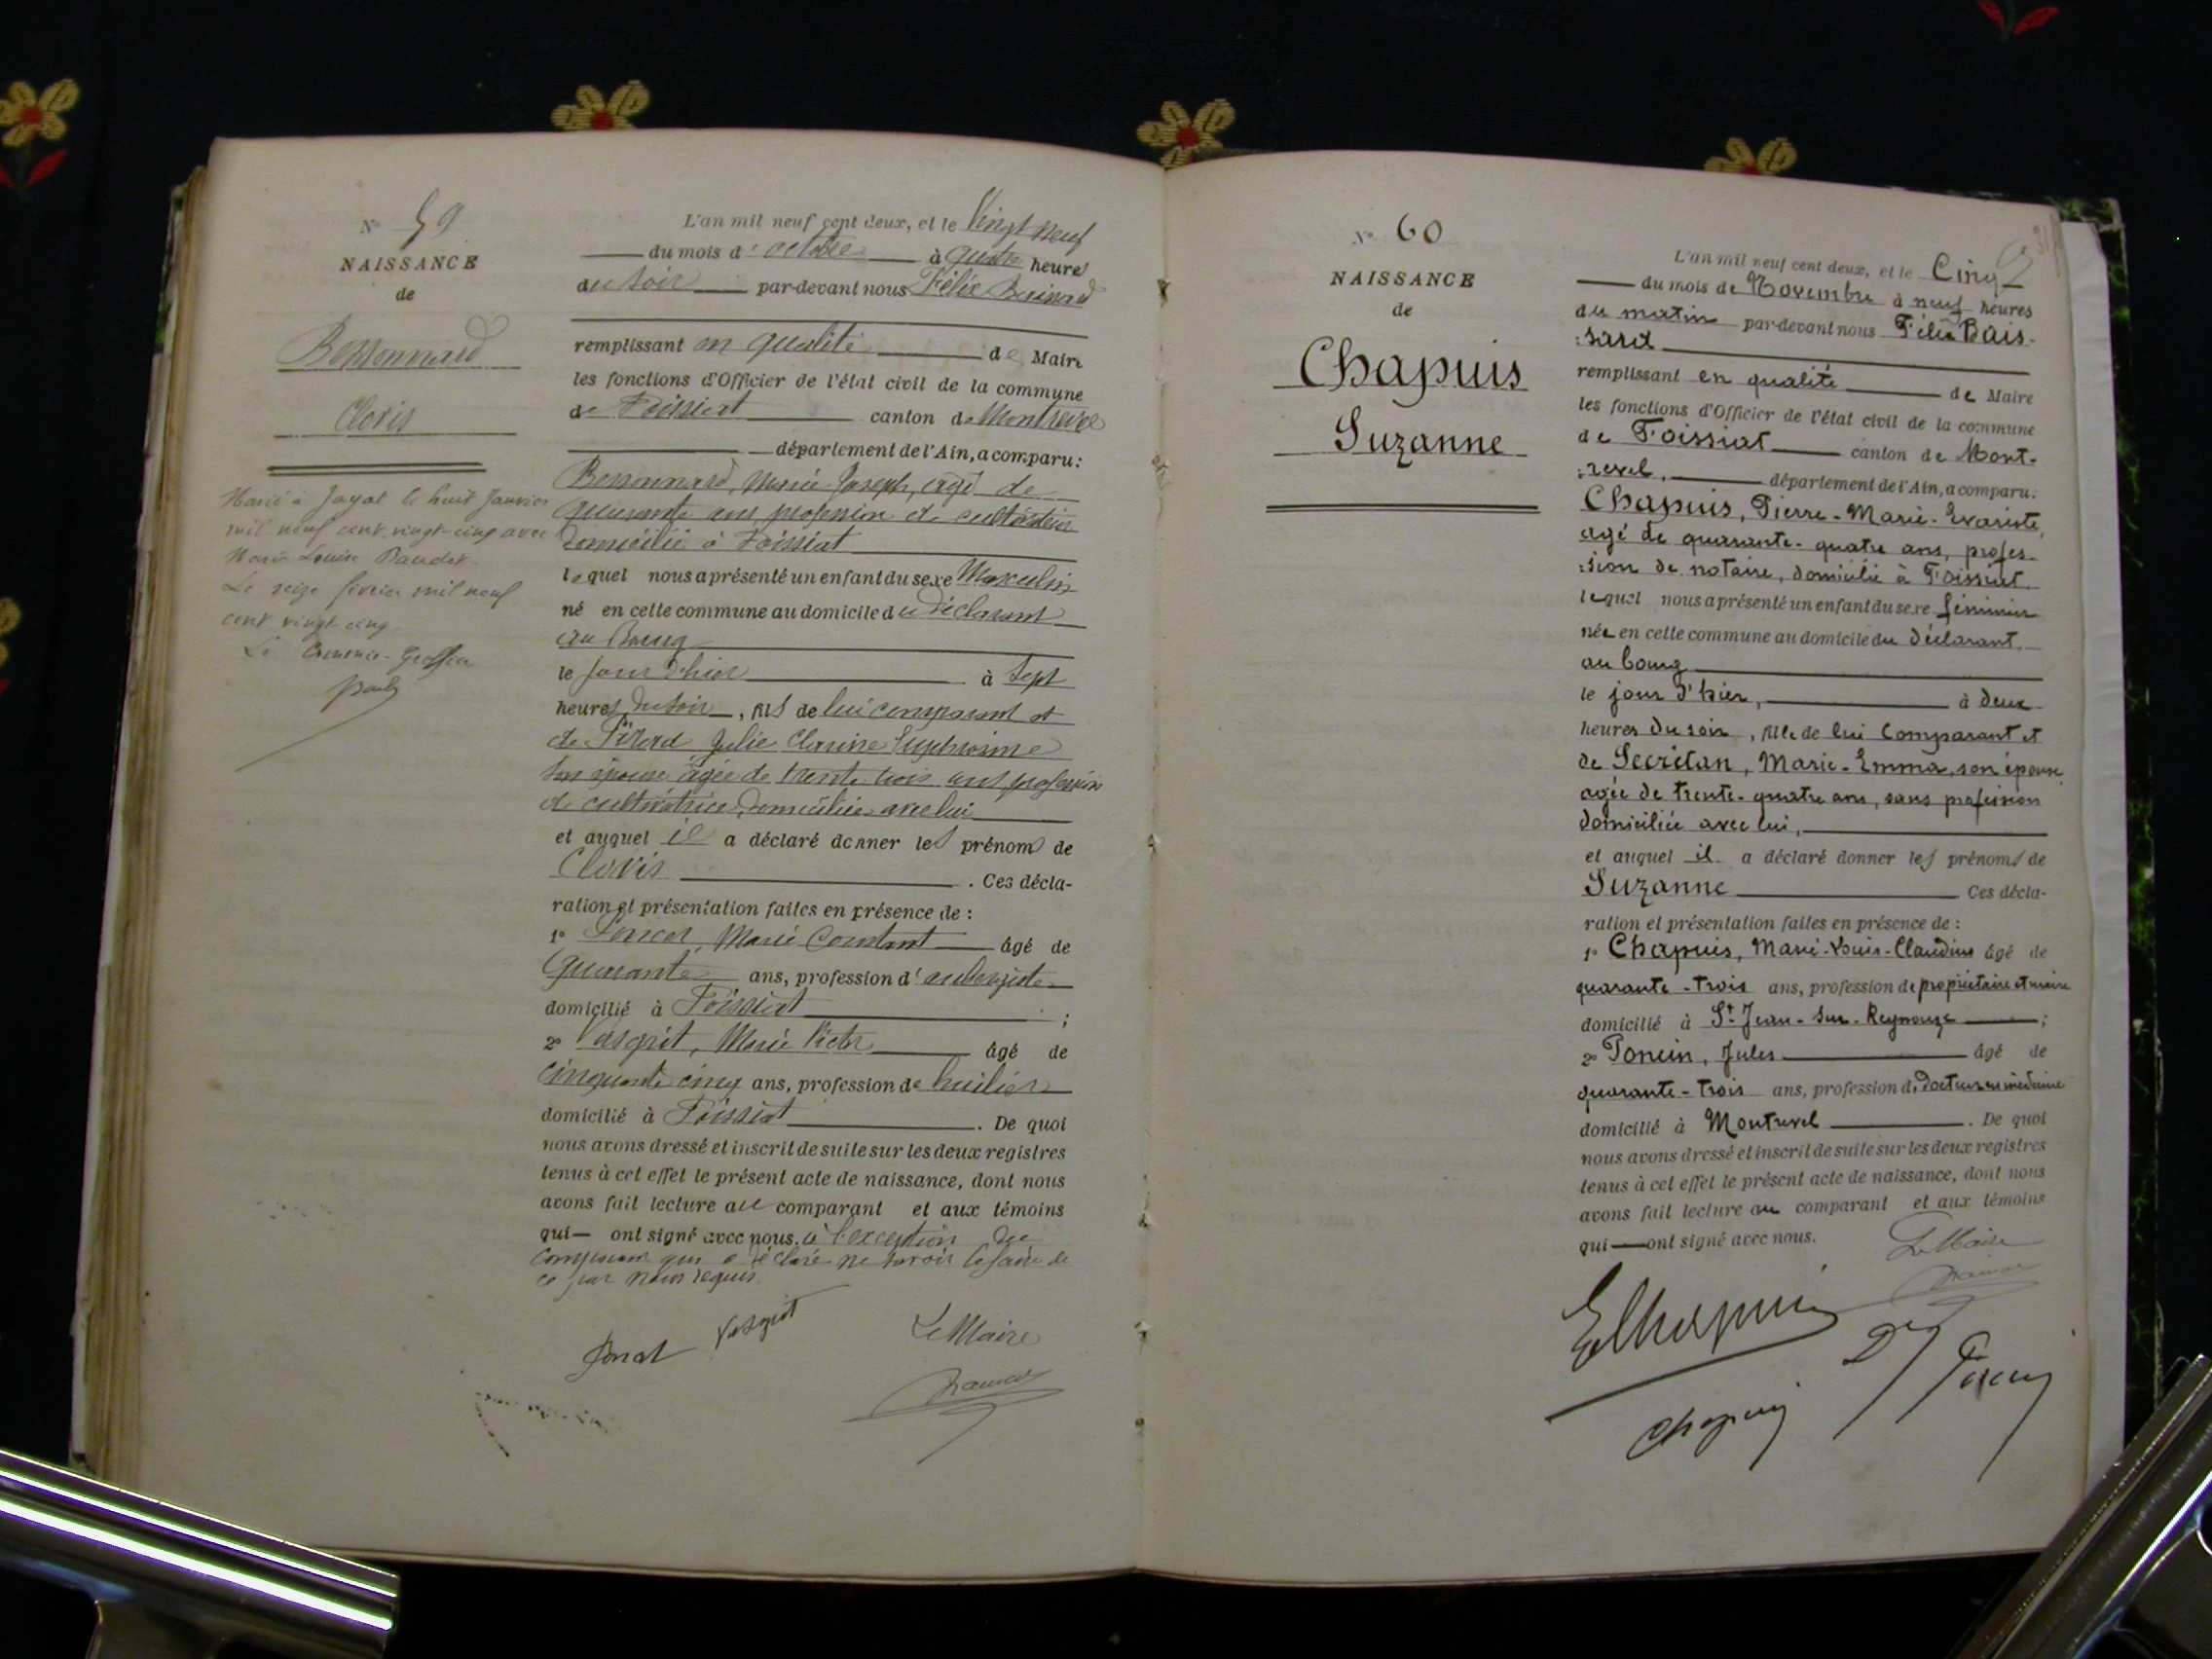 N° 59
NAISSANCE
de
Bessonnard
Clovis
Marié à Jayat le huit Janvier
mil neuf cent vingt-cinq avec
Marie Louise Baudet
Le seize février mil neuf
cent vingt cinq
Le Commis-Greffier
L'an mil neuf cent deux, et le Vingt neuf
du mois d'octobre à quatre heures
du soir par-devant nous Félix
remplissant en qualité de Maire
les fonctions d'Officier de l'état civil de la commune
de Foissiat canton de Montrevel
département de l'Ain, a comparu:
Bessonnard, Marie Joseph, agé de
quarante ans profession de cultivateur
domicilié à Foissiat
lequel nous a présenté un enfant du sexe Masculin
né en cette commune au domicile du déclarant
au Bourg
le jour d'hier à Sept
heures du soir, fils de lui comparant et
de Julie Clarine
son épouse agée de trente trois ans profession
de cultivatrice domiciliée avec lui
et auquel il a déclaré donner les prénoms de
Clovis. Ces décla-
ration et présentation faites en présence de :
1° Marie Constant âgé de
quarante ans, profession d'aubergiste
domicilié à Foissiat ;
2° Vasgrit, Marie Victor âgé de
cinquante cinq ans, profession de huilier
domicilié à Foissiat. De quoi
nous avons dressé et inscrit de suite sur les deux registres
tenus à cet effet le présent acte de naissance, dont nous
avons fait lecture au comparant et aux témoins
qui — ont signé avec nous, à l'exception du
comparant qui a déclaré ne savoir le faire de
ce par nous requis
Vasgrit
Le Maire
N° 60
NAISSANCE
de
Chapuis
Suzanne
L'an mil neuf cent deux, et le Cinq
du mois de Novembre à neuf heures
du matin par-devant nous Félix Bais-
:sard
remplissant en qualité de Maire
les fonctions d'Officier de l'état civil de la commune
de Foissiat canton de Mont-
:revel, département de l'Ain, a comparu:
Chapuis, Pierre-Marie-Evariste,
agé de quarante-quatre ans, profes-
:sion de notaire, domicilié à Foissiat
lequel nous a présenté un enfant du sexe féminin
née en cette commune au domicile du déclarant,
au bourg
le jour d'hier, à deux
heures du soir, fille de lui Comparant et
de Secrétan, Marie-Emma, son épouse
agée de trente-quatre ans, sans profession
domiciliée avec lui,
et auquel il a déclaré donner les prénoms de
Suzanne Ces décla-
ration et présentation faites en présence de :
1° Chapuis, Marie-Louis-Claudius âgé de
quarante-trois ans, profession de propriétaire et maire
domicilié à St Jean-sur-Reyssouze ;
2° Poncin, Jules âgé de
quarante-trois ans, profession de docteur en médecine
domicilié à Montrevel. De quoi
nous avons dressé et inscrit de suite sur les deux registres
tenus à cet effet le présent acte de naissance, dont nous
avons fait lecture au comparant et aux témoins
qui — ont signé avec nous.
Le Maire
EChapuis
Dr Poncin
Chapuis